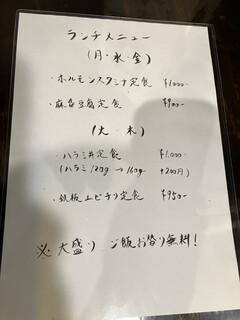 ランチメニュー
(月・水・金)
・ホルモンスタミナ定食 ¥1000-
・麻婆豆腐定食 ¥900-
(火・木)
・ハラミ丼定食 ¥1,000-
(ハラミ120g→160g +200円)
・鉄板エビチリ定食 ¥950-
※大盛り ご飯お替り無料!